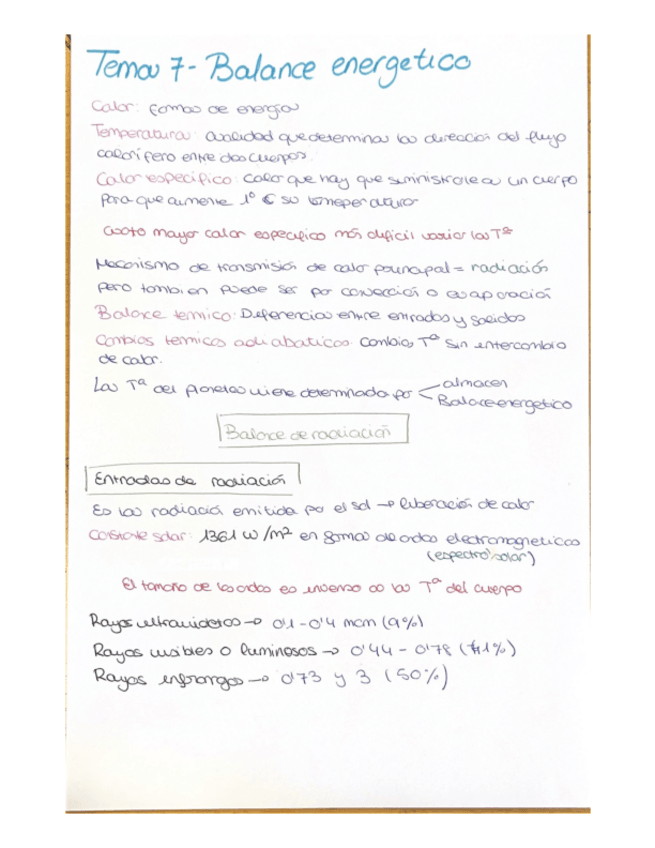 Tema 7- Balance energetico
Calor: forma de energía
Temperatura: cualidad que determina la dirección del flujo
calorífero entre dos cuerpos.
Calor especifico: calor que hay que suministrarle a un cuerpo
para que aumente 1° C su temeperatura
cuato mayor calor especifico más dificil variar la Tª
Mecanismo de transmisión de calor pounapal = radiación
pero tambien puede ser por convección o evaporación
Balance termico: Deferencia entre entradas y salidas
Cambios termicos adiabaticos: cambia Tª sin intercambio
de calor.
La Tª del planeta viene determinada por
almacen
Balance energetico
Balance de radiación
Entradas de radiación
Es la radiación emitida por el sol → liberación de calor
Constante solar: 1361 W/m² en forma de ondas electromagneticas
(espectro solar)
El tamaño de las ondas es inverso a la Tª del cuerpo
Rayos ultravioletas → 0'1-0'4 mcm (9%)
Rayos visibles o luminosos → 0'44 - 0'78 (41%)
Rayos infrarrojos → 0'73 y 3 (50%)